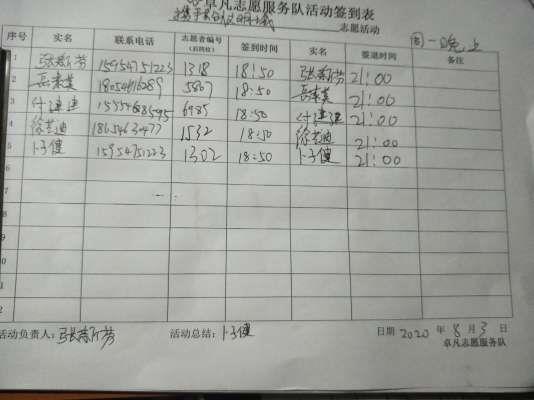 卓凡志愿服务队活动签到表
志愿活动 周一晚上
序号 实名 联系电话 志愿者编号(后四位) 签到时间 实名 签退时间 备注
1 15954751223 1318 18:50 21:00
2 5867 18:50 21:00
3 6985 18:50 21:00
4 徐艺迪 1865463477 1532 18:50 徐艺迪 21:00
5 卜子健 15954751223 1302 18:50 卜子健 21:00
6
7
8
9
0
1
2
活动负责人: 活动总结:卜子健 日期 2020 年 8 月 3 日
卓凡志愿服务队